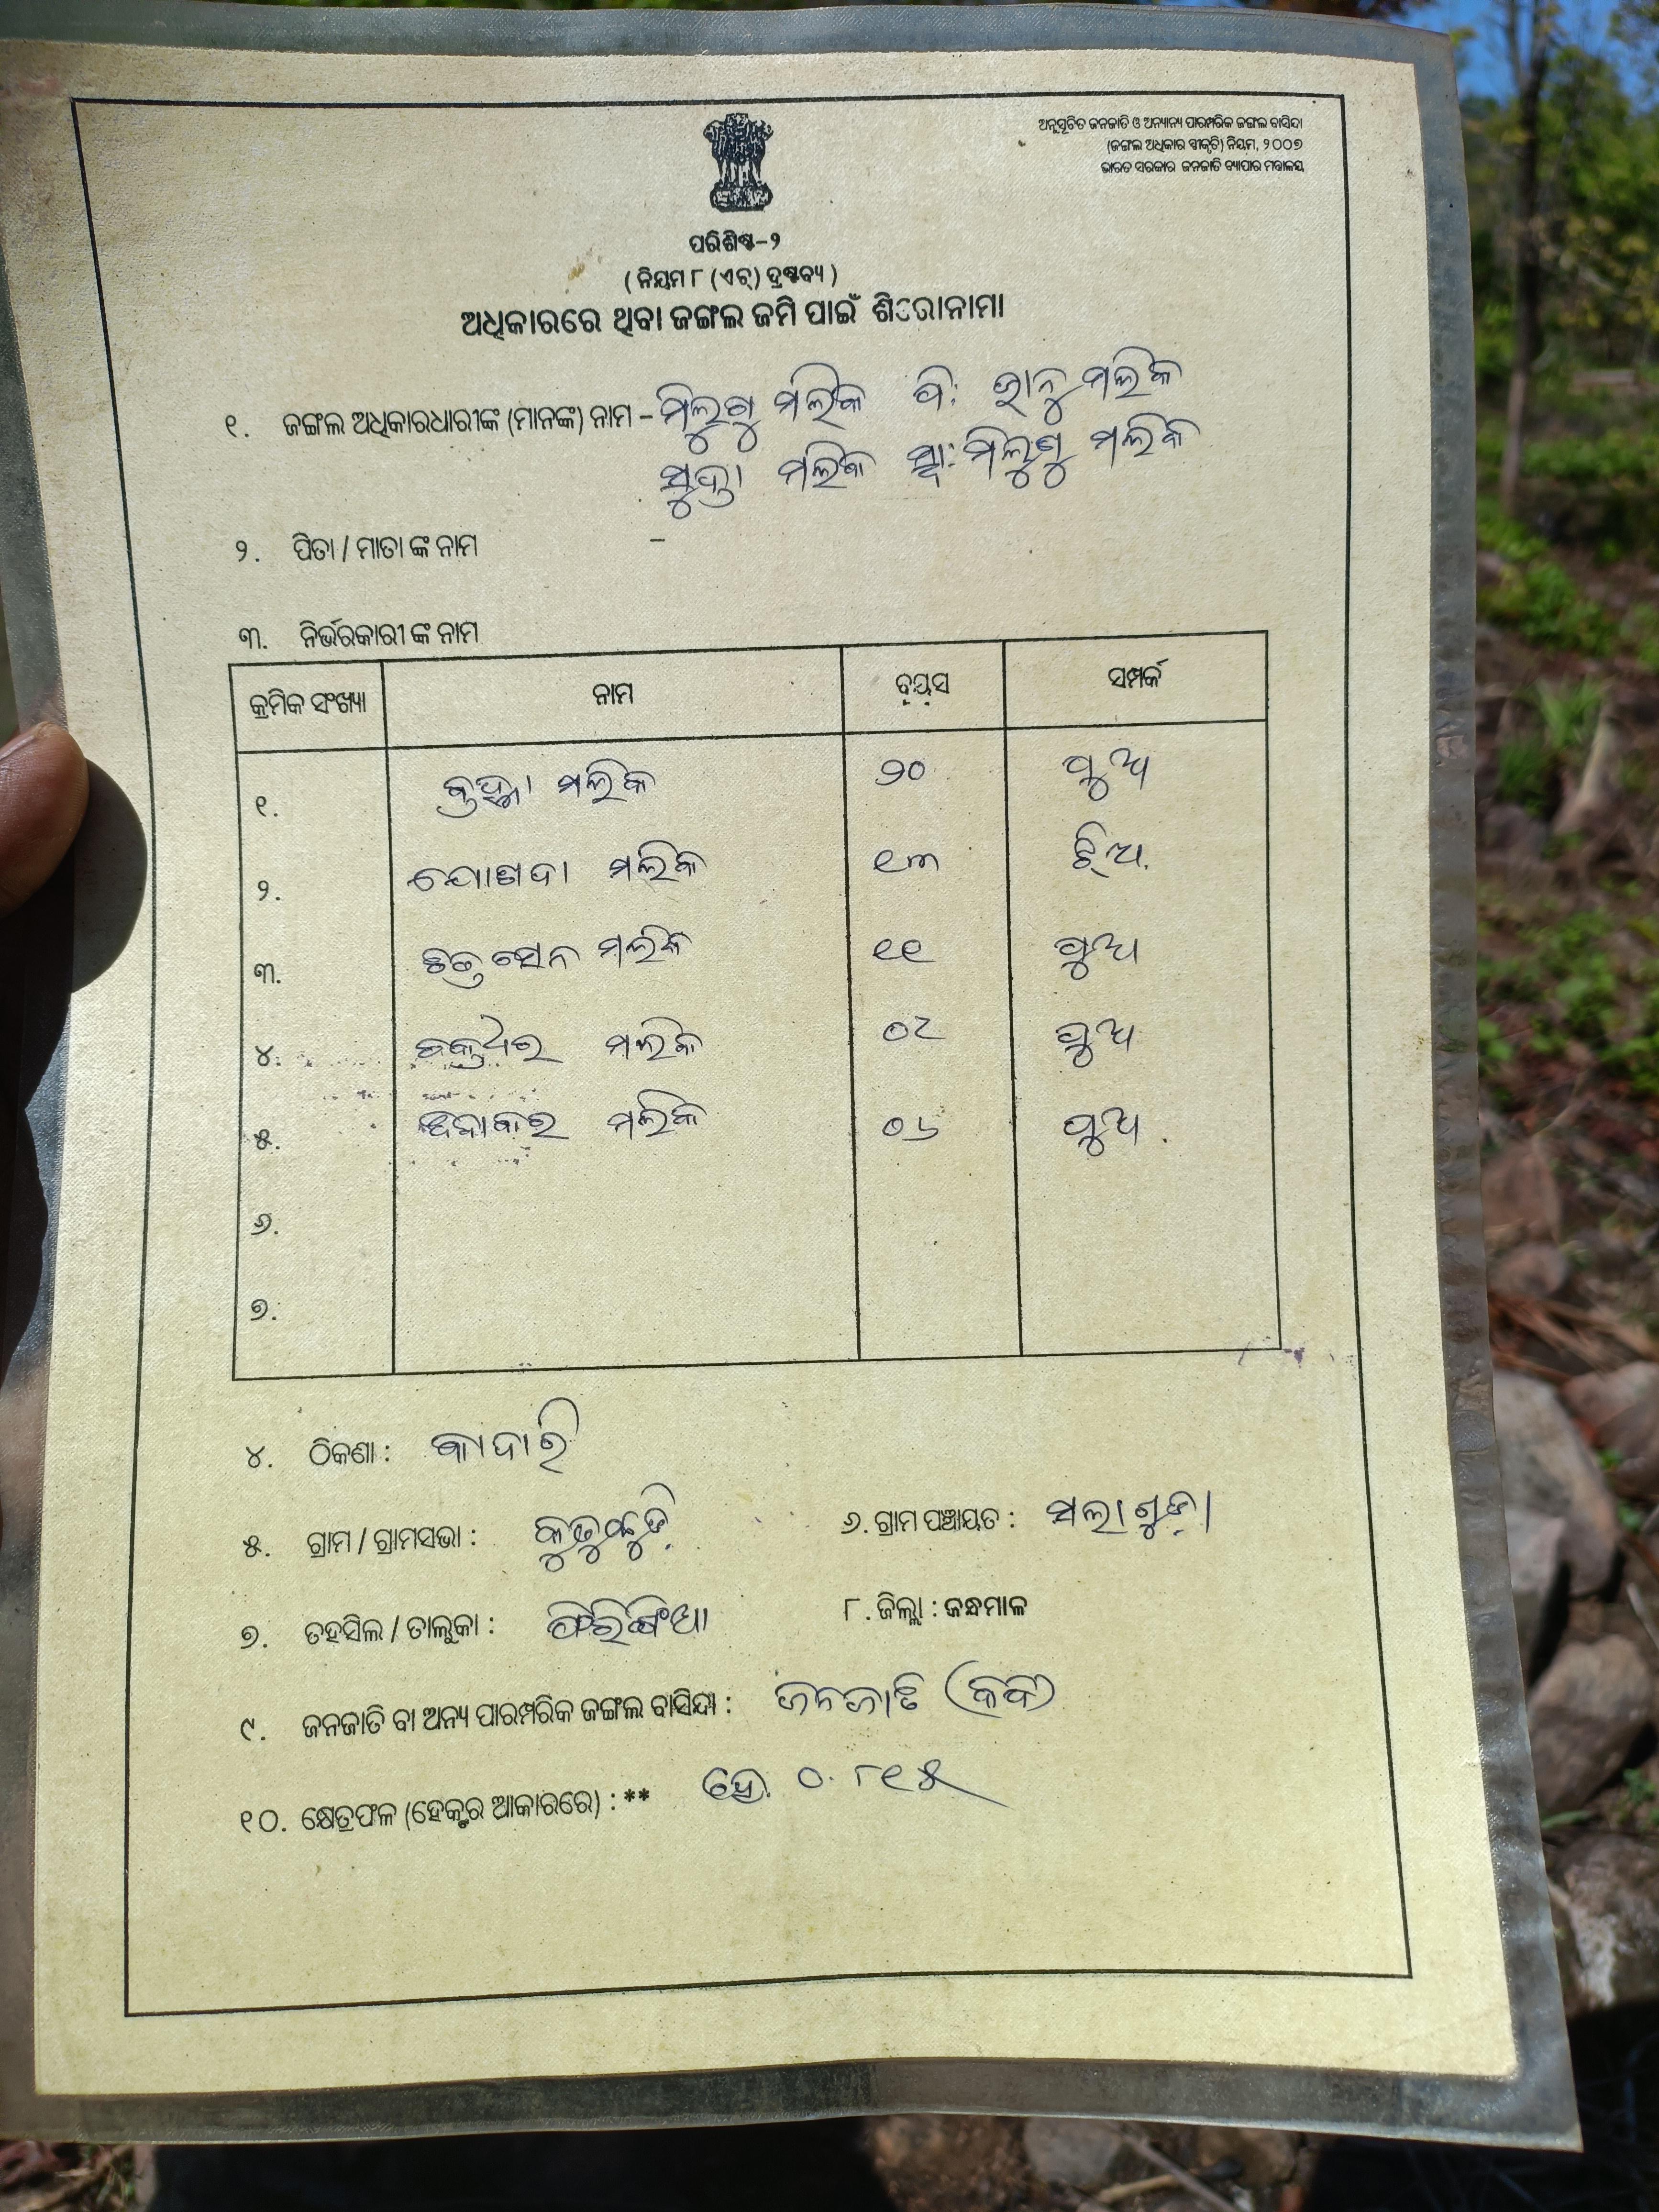 ଅନୁସୂଚିତ ଜନଜାତି ଓ ଅନ୍ୟାନ୍ୟ ପାରମ୍ପରିକ ଜଙ୍ଗଲ ବାସିନ୍ଦା
(ଜଙ୍ଗଲ ଅଧିକାର ସ୍ବୀକୃତି) ନିୟମ, ୨୦୦୭
ଭାରତ ସରକାର ଜନଜାତି ବ୍ୟାପାର ମନ୍ତ୍ରାଳୟ
ପରିଶିଷ୍ଟ-୨
( ନିୟମ ୮ (ଏଚ୍) ଦ୍ରଷ୍ଟବ୍ୟ )
ଅଧିକାରରେ ଥିବା ଜଙ୍ଗଲ ଜମି ପାଇଁ ଶିରୋନାମା
୧. ଜଙ୍ଗଲ ଅଧିକାରଧାରୀଙ୍କ (ମାନଙ୍କ) ନାମ - ମିଲୁଗୁ ମଲିକ ପି: ଭାନୁ ମଲିକ
ମଲିକ ସ୍ୱା: ମିଲୁଗୁ ମଲିକ
୨. ପିତା / ମାତା ଙ୍କ ନାମ -
୩. ନିର୍ଭରକାରୀ ଙ୍କ ନାମ
କ୍ରମିକ ସଂଖ୍ୟା ନାମ ବୟସ ସମ୍ପର୍କ
୧. ମଲିକ ୨୦ ପୁଅ
୨. ଯୋଶଦା ମଲିକ ୧୩ ଝିଅ.
୩. ଛତ୍ରସେନ ମଲିକ ୧୧ ପୁଅ
୪. ଚକ୍ରଧର ମଲିକ ୦୮ ପୁଅ
୫. ମଲିକ ୦୬ ପୁଅ.
୬.
୭.
୪. ଠିକଣା : କାଦାରି
୫. ଗ୍ରାମ / ଗ୍ରାମସଭା : ୬. ଗ୍ରାମ ପଞ୍ଚାୟତ : ସଲାଗୁଡ଼ା
୭. ତହସିଲ / ତାଲୁକା : ଫିରିଙ୍ଗିଆ ୮. ଜିଲ୍ଲା : କନ୍ଧମାଳ
୯. ଜନଜାତି ବା ଅନ୍ୟ ପାରମ୍ପରିକ ଜଙ୍ଗଲ ବାସିନ୍ଦା : ଜନଜାତି (କନ୍ଧ)
୧୦. କ୍ଷେତ୍ରଫଳ (ହେକ୍ଟର ଆକାରରେ) : ** ହେ. ୦.୮୧୫